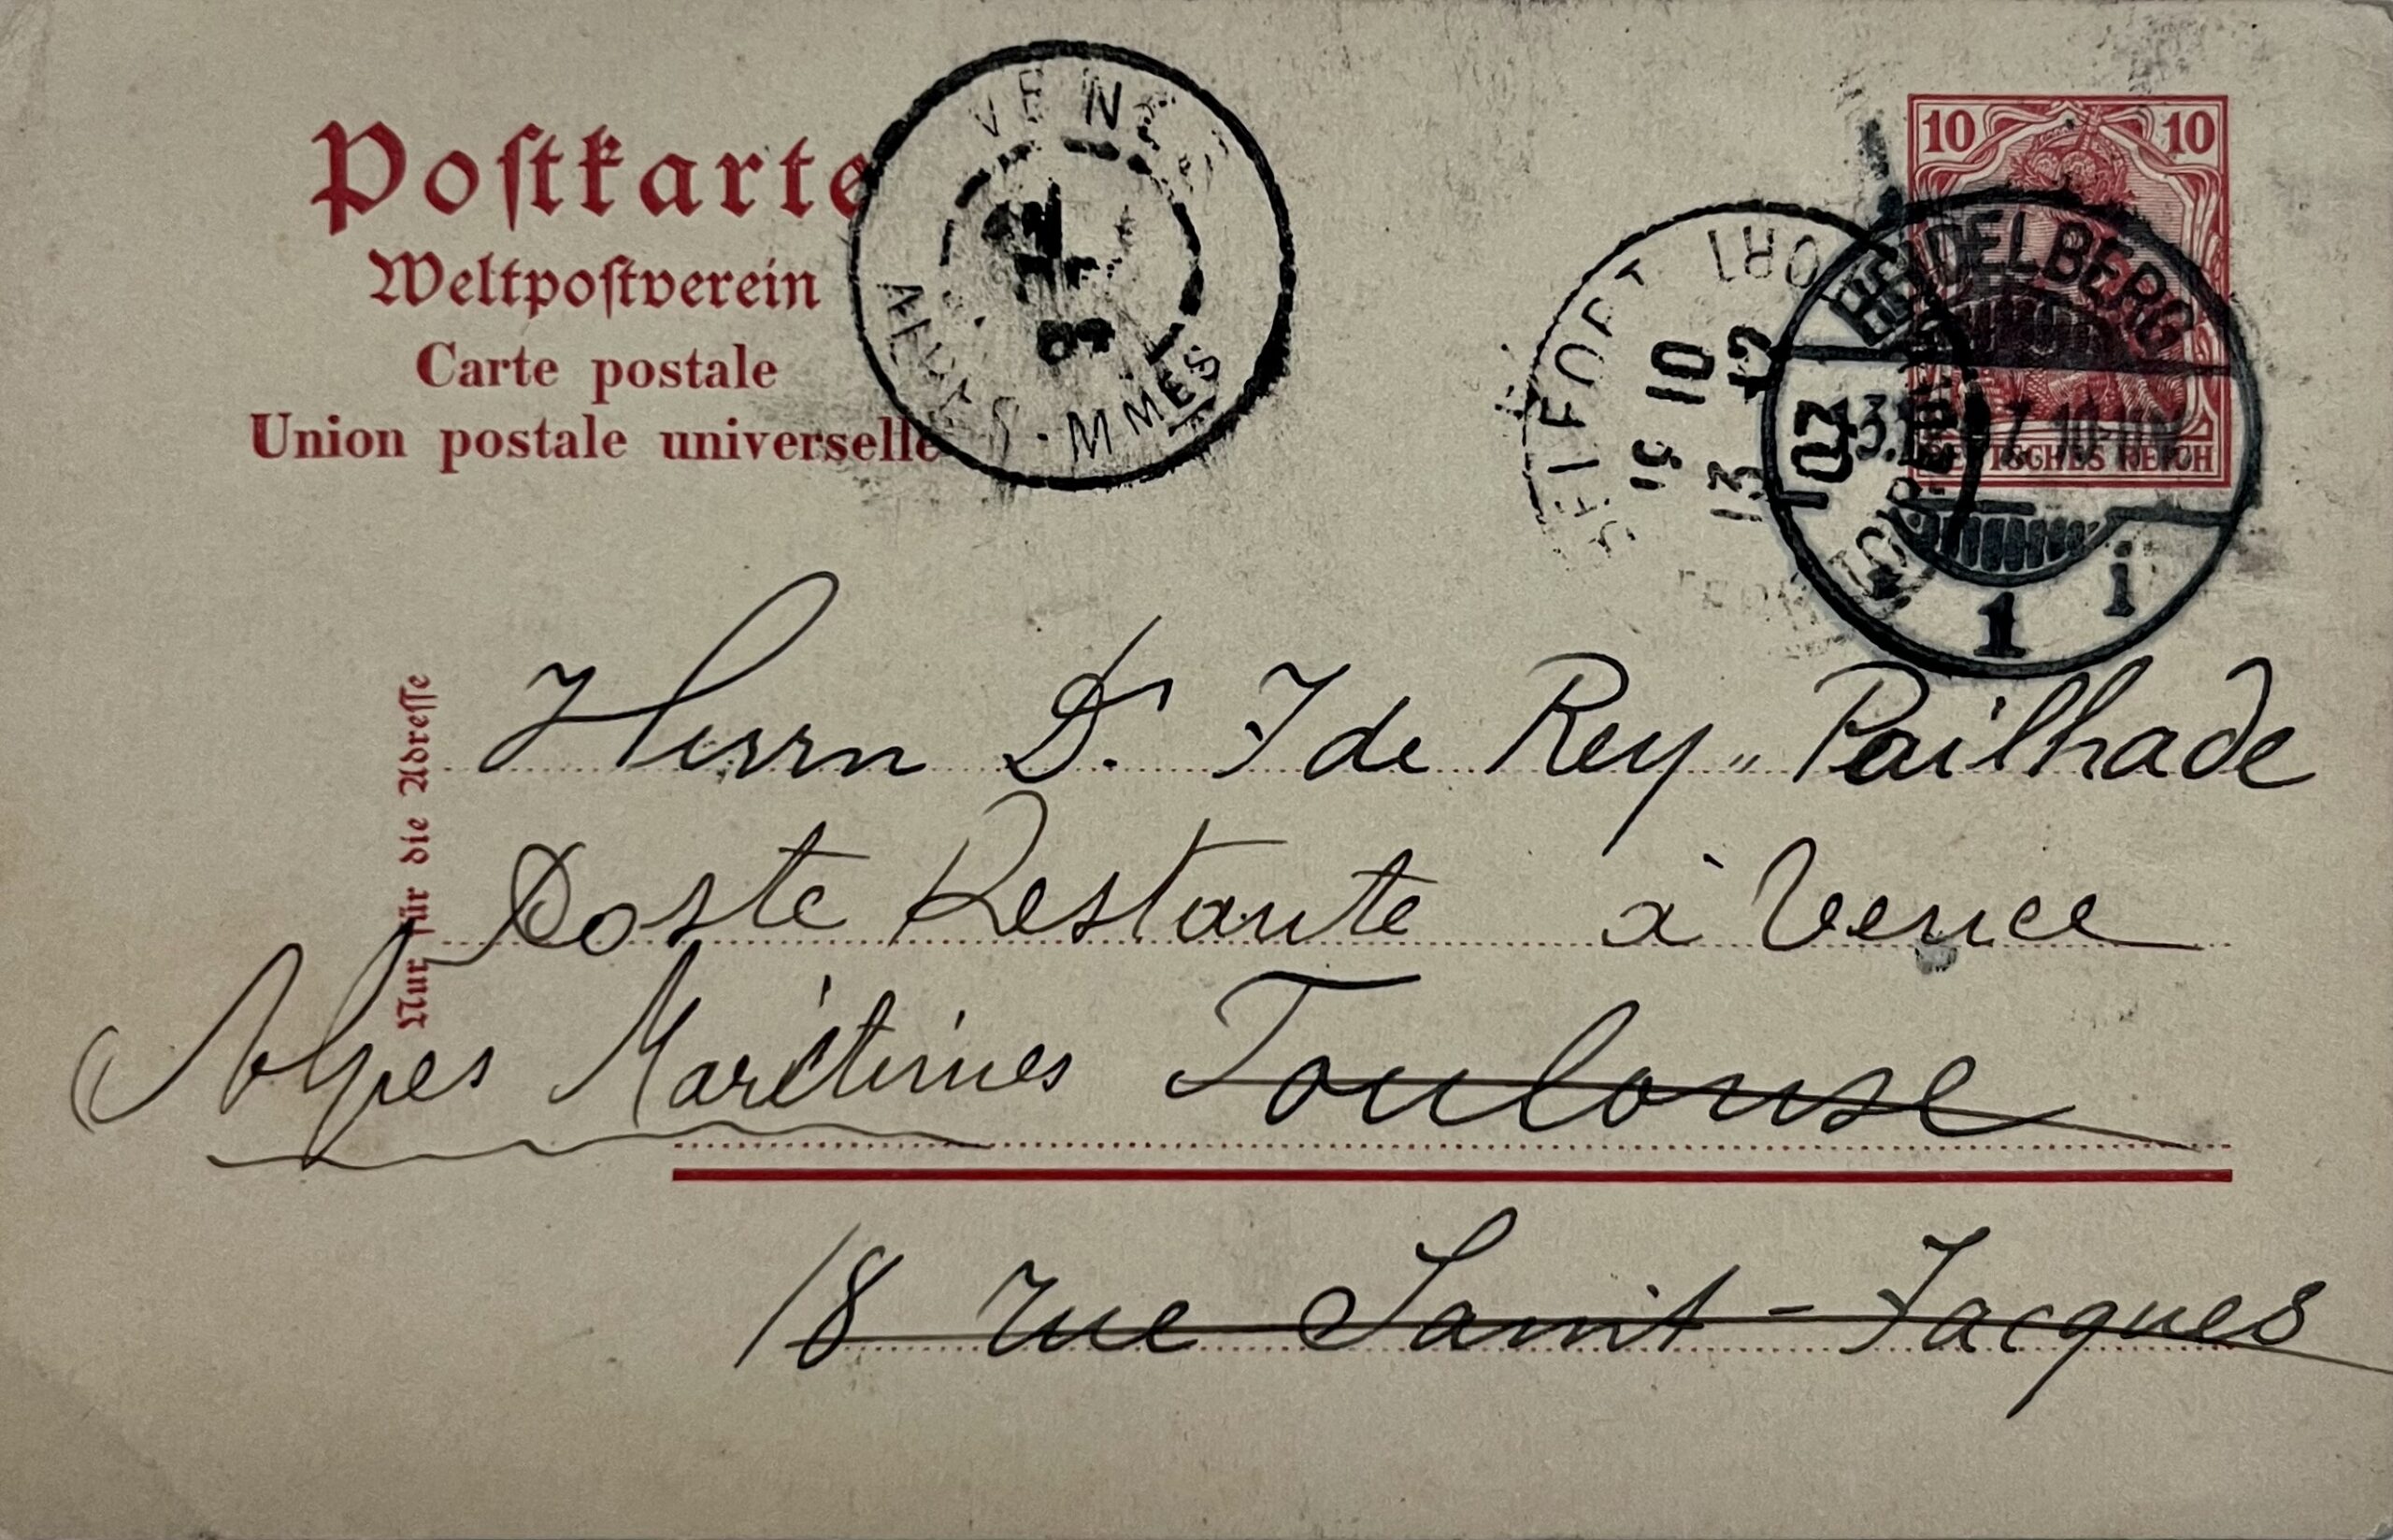 Postkarte
Weltpostverein
Carte postale
Union postale universelle
10 10
DEUTSCHES REICH
HEIDELBERG
1 i
Nur für die Adresse
Herrn Dr. J de Rey-Pailhade
Poste Restante à Vence
Alpes Maritimes Toulouse
18 rue Saint-Jacques